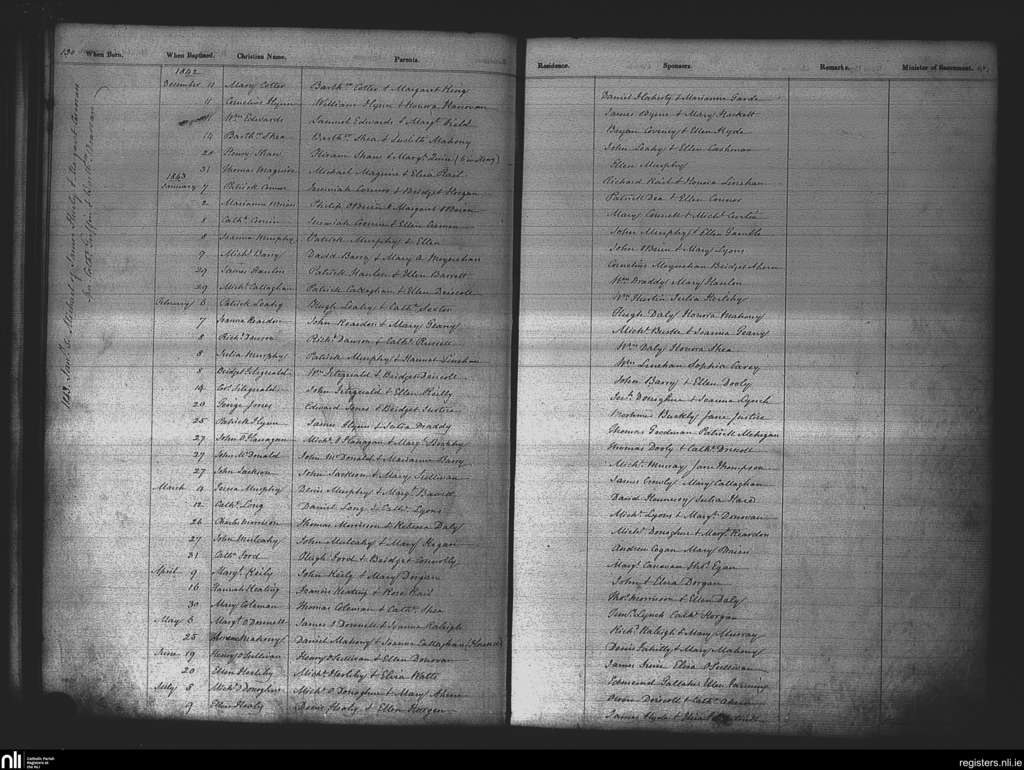 130 When Born. When Baptized. Christian Name. Parents. Residence. Sponsors. Remarks. Minister of Sacrament.
1842
December 11 Mary Cotter Barthw. Cotter & Margaret King Daniel Flaherty & Marianne Forde
11 Cornelius Flynn William Flynn & Honora Hanovan James Byrne & Mary Haskett
Wm Edwards Samuel Edwards & Margt. Field Bryan Coveney & Ellen Hyde
14 Barthw. Shea Barthw. Shea & Judith Mahony John Leahy & Ellen Cashman
20 Henry Shaw Hiram Shaw & Margt. Quin Ellen Murphy
31 Thomas Maguire Michael Maguire & Eliza Rail Richard Rail & Honora Linehan
1843
January 7 Patrick Connor Jeremiah Connor & Bridget Horgan Patrick Dea & Ellen Connor
2 Marianne OBrien Philip O'Brien & Margaret OBrien Mary Connell & Michl.
8 Cathe. Jeremiah & Ellen John Murphy & Ellen Gamble
8 Joanna Murphy Patrick Murphy & Ellen John OBrien & Mary Lyons
9 Michl. Barry David Barry & Mary A Moynehan Cornelius Moynehan Bridget Ahern
29 James Hanlon Patrick Hanlon & Ellen Barrett Wm Braddy Mary Hanlon
29 Michl. Callaghan Patrick Callaghan & Ellen Driscoll Wm Julia
February 5 Patrick Leahy Hugh Leahy & Cathe. Sexton Hugh Daly Honora Mahony
7 Joanna Reardon John Reardon & Mary Geany Michl. Burke & Joanna Geany
8 Richd. Dawson Richd. Dawson & Cathe. Russell Wm Daly Honora Shea
8 Julia Murphy Patrick Murphy & Hannah Linehan Wm Linehan Sophia Carey
8 Bridget Fitzgerald Wm Fitzgerald & Bridget Driscoll John Barry & Ellen Dooly
14 Fitzgerald John Fitzgerald & Ellen Reilly Donoghue & Joanna Lynch
20 George Jones Edward Jones & Bridget Justice Mortimer Buckley Jane Justice
25 Patrick Flynn James Flynn & Julia Braddy Thomas Goodman Patrick Mehigan
27 John O'Flanagan Michl. O'Flanagan & Margt. Thomas Dooly & Cathe. Driscoll
27 John McDonald John McDonald & Marianne Barry Michl. Murray Jane Thompson
27 John Jackson John Jackson & Mary Sullivan James Crowly Mary Callaghan
March 4 Teresa Murphy Denis Murphy & Margt. David Hennessy Julia
12 Cathe. Long Daniel Long & Cathe. Lyons Michl. Lyons & Margt. Donovan
26 Charles Morrison Thomas Morrison & Rebecca Daly Michl. Donoghue & Margt. Reardon
27 John Mulcahy John Mulcahy & Mary Regan Andrew Cogan Mary Brien
31 Cathe. Ford Hugh Ford & Bridget Connolly Margt. Canovan Thos. Egan
April 9 Margt. Keily John Keily & Mary Dorgan John & Eliza Dorgan
16 Hannah Keating Francis Keating & Rose Rail Thos. Morrison & Ellen Daly
30 Mary Coleman Thomas Coleman & Cathe. Shea Lynch Cathe. Horgan
May 5 Margt. O'Donnell James O'Donnell & Joanna Raleigh Richd. Raleigh & Mary Murray
25 Mahony Daniel Mahony & Joanna Callaghan Denis & Mary Mahony
June 19 Henry O'Sullivan Henry O'Sullivan & Ellen Donovan James Irvin Eliza O'Sullivan
20 Ellen Herlihy Michl. Herlihy & Eliza Watts Townsend Ellen
July 5 Michl. O'Donoghue Michl. O'Donoghue & Mary Ahern Driscoll & Cathe. Ahern
9 Ellen Healy Denis Healy & Ellen Horgan James Hyde &
nli
Catholic Parish
Registers at
the NLI
registers.nli.ie